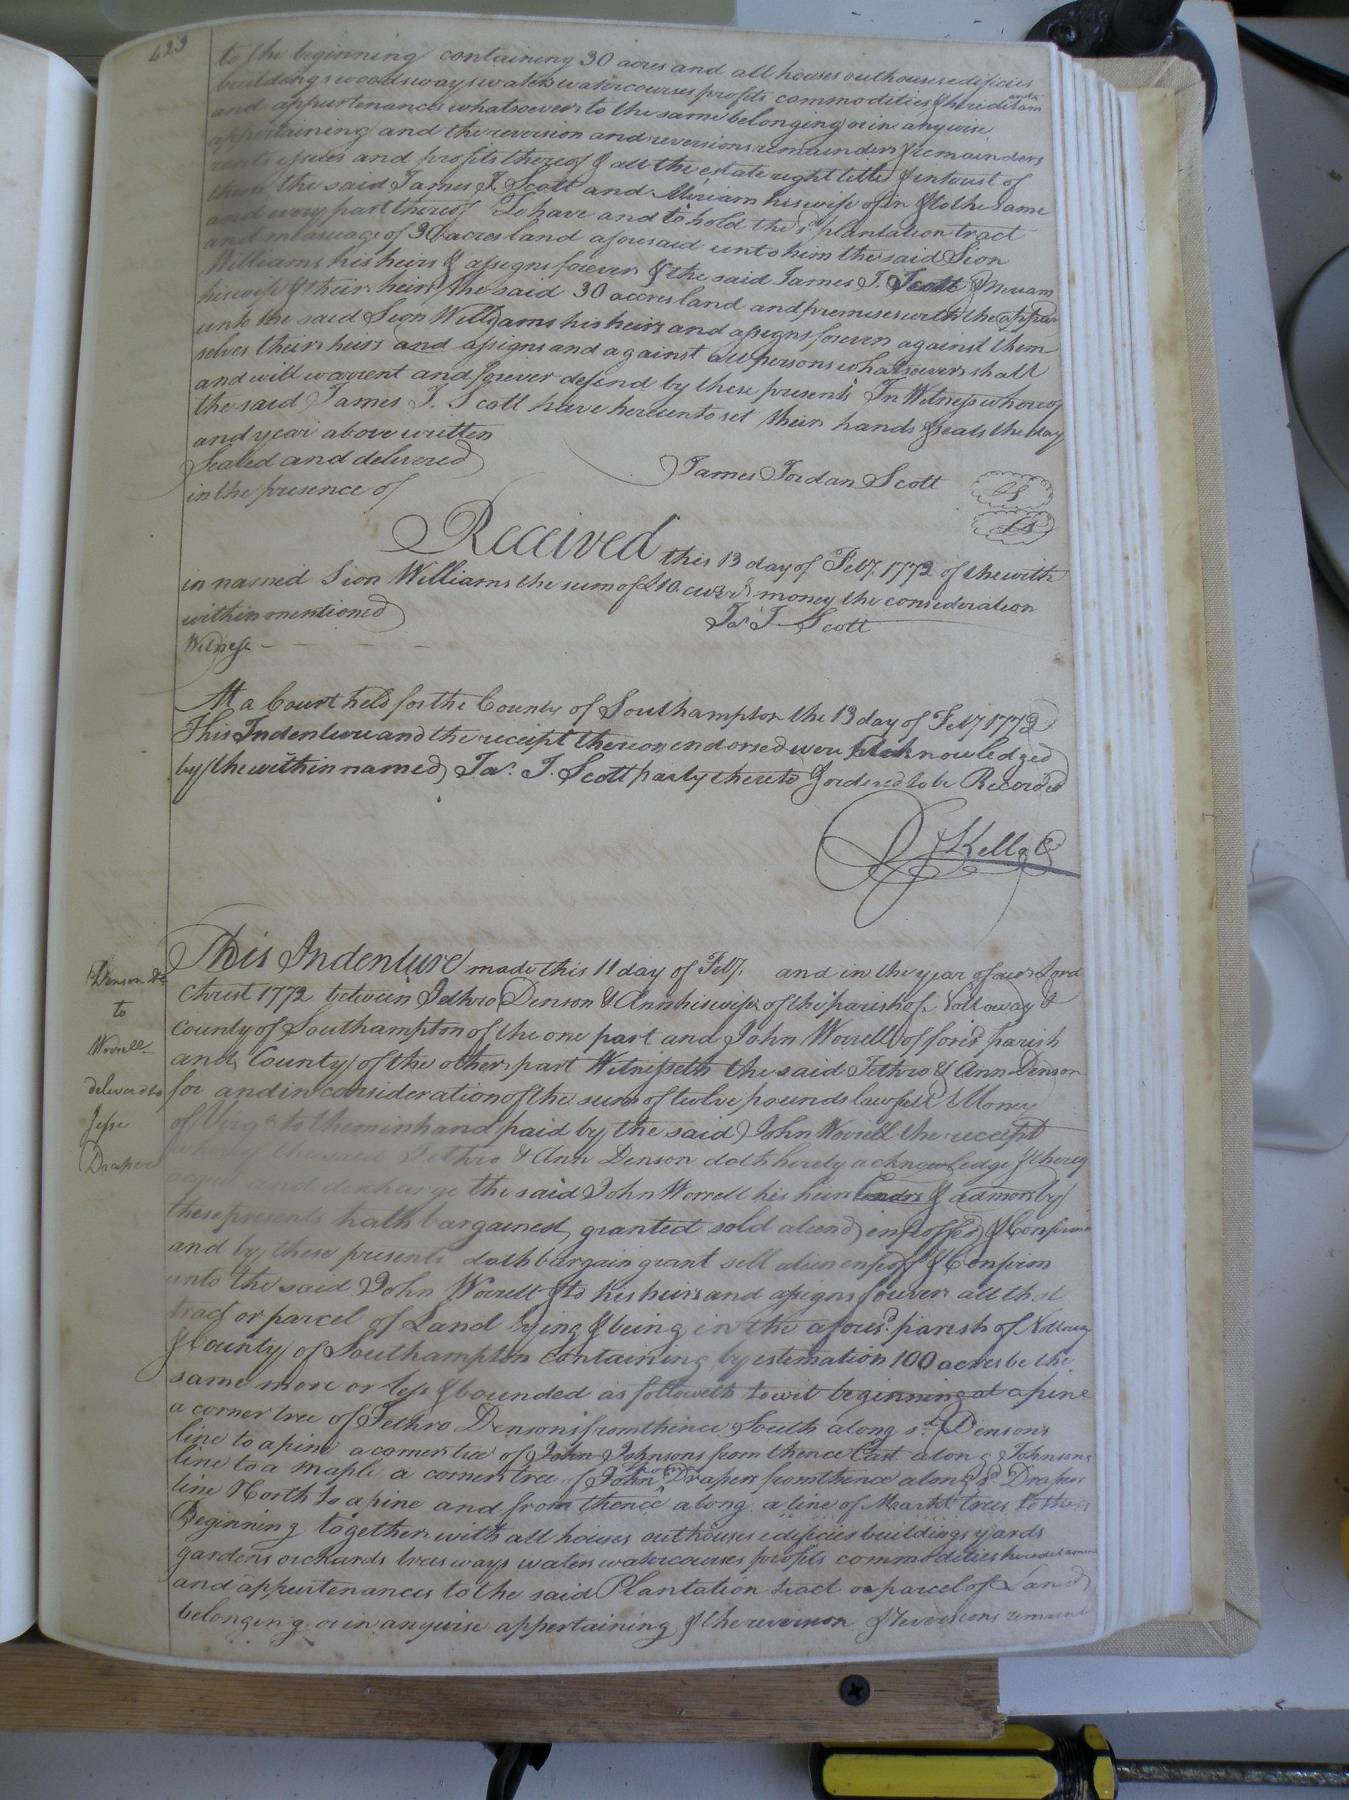 423
to the beginning containing 30 acres and all houses outhouses edificies
buildings woods ways waters watercourses profits commodities & hereditam
ents
and appurtenances whatsoever to the same belonging or in anywise
appertaining and the reversion and reversions remainder & remainders
rents issues and profits thereof & all the estate right title & interest of
them the said James J. Scott and Miriam his wife of in & to the same
and every part thereof To have and to hold the sd plantation tract
and messuage of 30 acres land aforesaid unto him the said Sion
Williams his heirs & assigns forever & the said James J. Scott & Meriam
his wife & their heirs the said 30 accres land and premises with the appur
unto the said Sion Williams his heirs and assigns forever against them
selves their heirs and assigns and against all persons whatsoever shall
and will warrent and forever defend by these presents In Witness whereof
the said James J. Scott have hereunto set their hands & seals the day
and year above written
Sealed and delivered
in the presence of
James Jordan Scott LS
LS
Received this 13 day of Feby. 1772 of the with
in named Sion Williams the sum of £10. curr. money the consideration
within mentioned
Jas J Scott
Witness
At a Court held for the County of Southampton the 13 day of Feby 1772
This Indenture and the receipt thereon endorsed were Acknowledged
by the within named Jas. J. Scott party thereto & ordered to be Recorded
Kello C
Denson &c
to
Worrell
deliverd to
Jesse
Draper
This Indenture made this 11 day of Feby. and in the year of our Lord
Christ 1772 between Jethro Denson & Ann his wife of the parish of Nottoway &
County of Southampton of the one part and John Worrell of sd parish
and County of the other part Witnesseth the said Jethro & Ann Denson
for and in consideration of the sum of twelve pounds lawfull Money
of Virga to them in hand paid by the said John Worrell the receipt
whereof the said Jethro & Ann Denson doth hereby acknowledge & thereof
acquit and discharge the said John Worrell his heirs exors & admors by
these presents hath bargained granted sold aliend infeoffed & Confirm
and by these presents doth bargain grant sell alien enfeoff & Confirm
unto the said John Worrell & to his heirs and assigns forever all that
tract or parcel of Land lying & being in the aforesd. parish of Nottoway
& County of Southampton Containing by estimation 100 acres be the
same more or less & bounded as followeth to wit beginning at a pine
a corner tree of Jethro Densons from thence South along sd. Densons
line to a pine a corner tree of John Johnsons from thence East along Johnsons
line to a maple a corner tree of John Draper from thence along sd Draper
line North to a pine and from thence along a line of Markt trees to the
Beginning together with all houses outhouses edificies buildings yards
gardens orchards trees ways waters watercourses profits commodities hereditaments
and appurtenances to the said Plantation tract or parcel of Land
belonging or in anywise appertaining & the reversion & reversions remaind